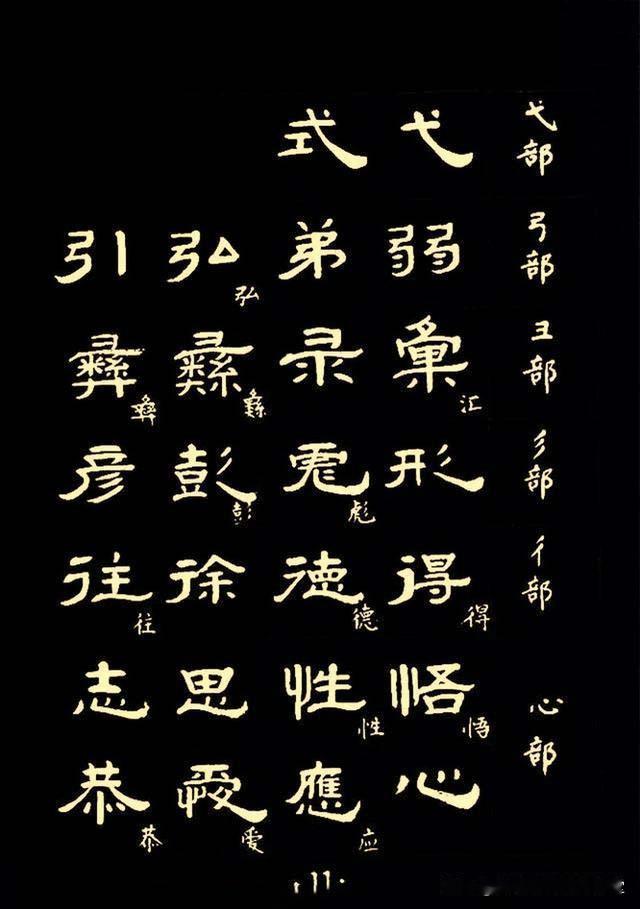 弋部 弋 式
弓部 弱 弟 弘 弘 引
彐部 彙 汇 录 彝 彝 彝 彝
彡部 形 彪 彪 彭 彭 彦
彳部 得 得 德 德 徐 往 往
心部 悟 悟 性 性 思 志
心 應 应 愛 爱 恭 恭
11